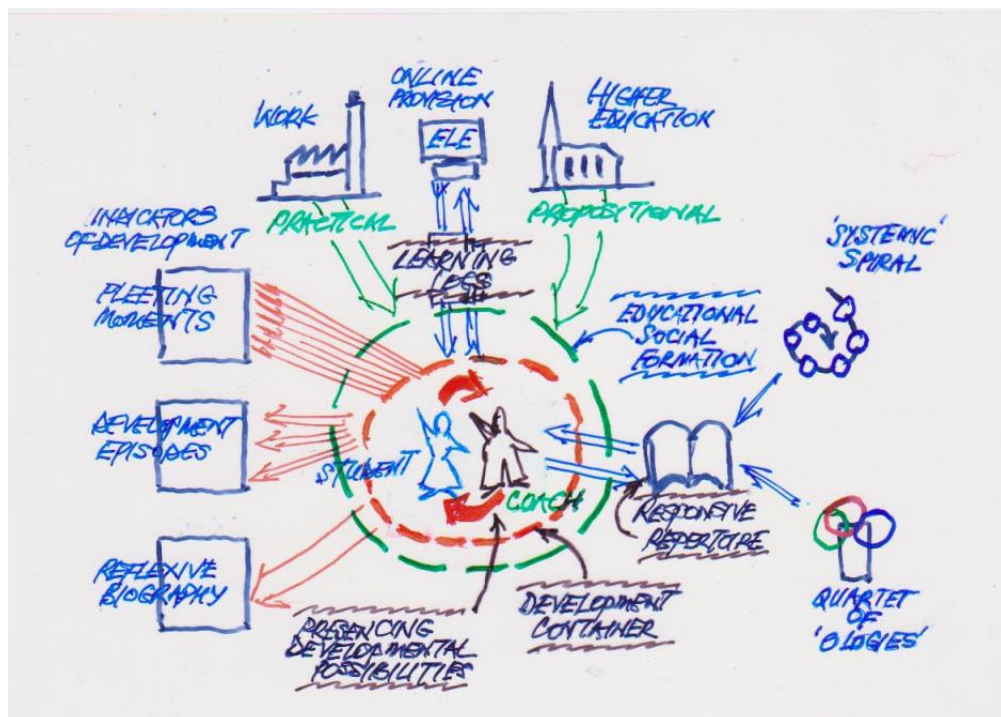 WORK
ONLINE
PROVISION
ELE
HIGHER
EDUCATION
PRACTICAL
PROPOSITIONAL
LEARNING
LOGS
INDICATORS
OF DEVELOPMENT
FLEETING
MOMENTS
DEVELOPMENT
EPISODES
REFLEXIVE
BIOGRAPHY
EDUCATIONAL
SOCIAL
FORMATION
'SYSTEMIC'
SPIRAL
STUDENT
COACH
RESPONSIVE
REPERTOIRE
QUARTET
OF
'OLOGIES'
PRESENCING
DEVELOPMENTAL
POSSIBILITIES
DEVELOPMENT
CONTAINER